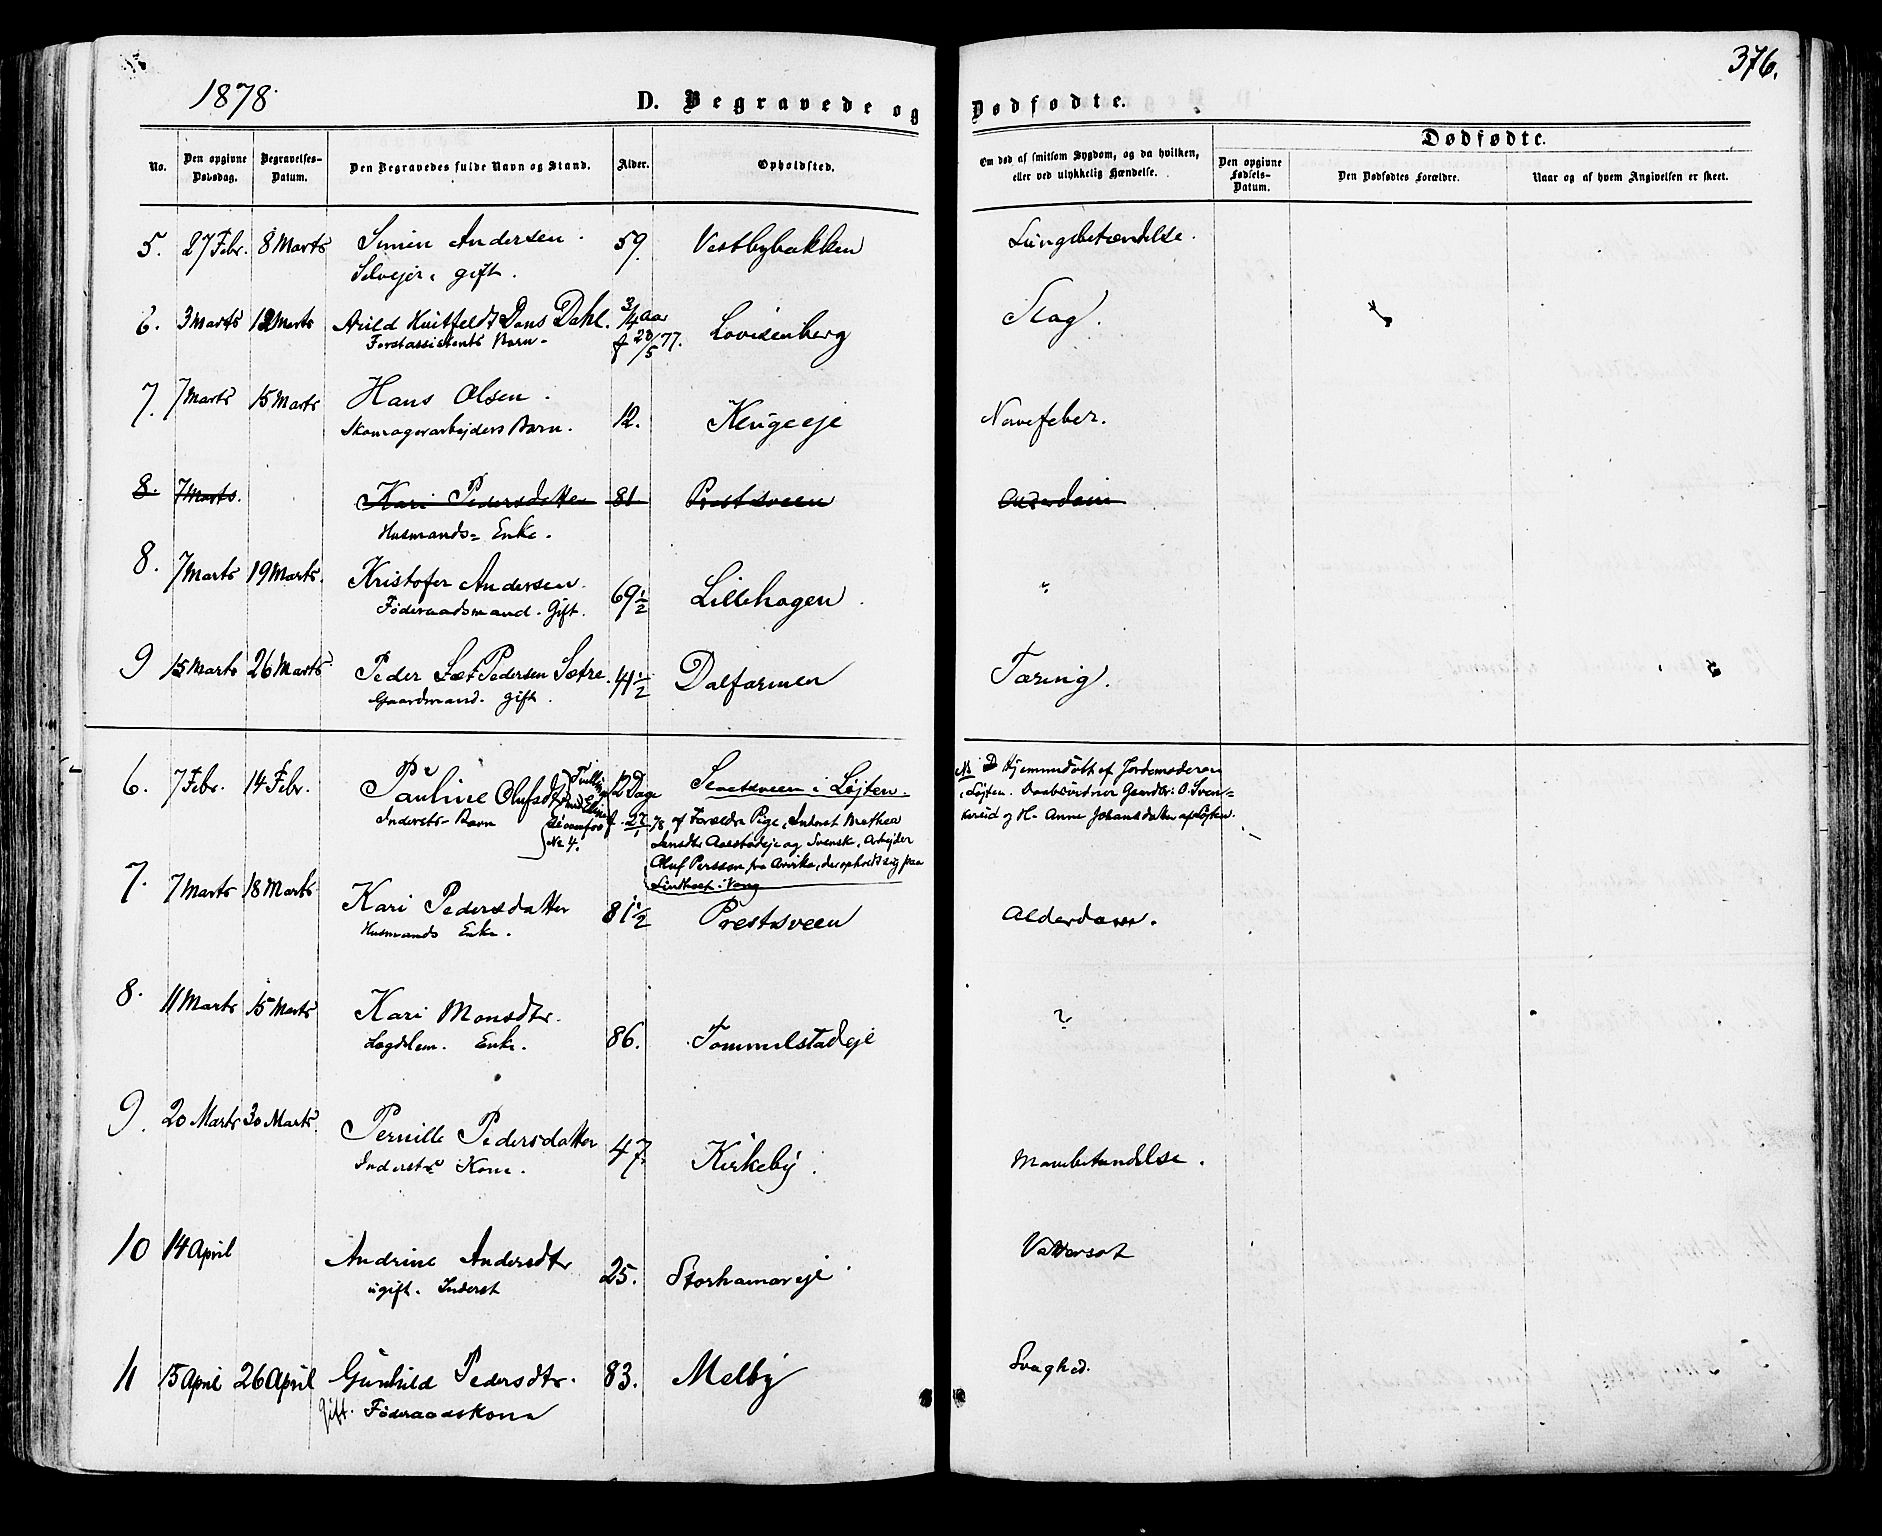 1878.
376.
D. Begravede og Dødfødte.
Dødfødte.
No.
Den opgivne Dødsdag.
Begravelses-Datum.
Den Begravedes fulde Navn og Stand.
Alder.
Opholdsted.
Om død af smitsom Sygdom, og da hvilken, eller ved ulykkelig Hændelse.
Den opgivne Fødsels-Datum.
Den Dødfødtes Forældre.
Naar og af hvem Angivelsen er skeet.
5. 27 Febr. 8 Marts Simen Andersen. 59. Vestbybakken Lungebetændelse.
Selvejer, gift.
6. 3 Marts 12 Marts Arild Huitfeldt Dons Dahl. 3/4 Aar Lovisenberg Slag.
Forstassistents Barn. f 23/5 77.
7. 7 Marts 15 Marts Hans Olsen. 12. Klugeeje Nervefeber.
Skomagerarbejders Barn.
8. 7 Marts. Kari Pedersdatter 81 Prestsveen Alderdom
Husmands= Enke.
8. 7 Marts 19 Marts. Kristofer Andersen. 69 1/2 Lillehagen. "
Føderaadsmand. Gift.
9 15 Marts 26 Marts Peder Pedersen Sætre. 41 1/2 Dalfarmen Tæring.
Gaardmand. gift.
6. 7 Febr. 14 Febr. Pauline Olufsdtr 12 Dage i Løjten.
Tvilling
Indersts Barn
No 4.
f. 27/1 78 af Forældre Pige, Inderst Mathea
Jensdtr og Svenske, Arbejder
Oluf Persson fra Arvika, der opholdt sig paa
i Vang
NB Hjemmedøbt af Jordemoderen
i Løjten.
og H. Anne Johansdatter af Løjten.
7. 7 Marts 18 Marts Kari Pedersdatter 81 1/2 Prestsveen Alderdom.
Husmands Enke.
8. 11 Marts 15 Marts Kari Monsdtr. 86. Tommelstadeje ?
Lægdslem. Enke.
9. 20 Marts 30 Marts. Pernille Pedersdatter 47. Kirkeby. Mavebetændelse.
Indersts Kone.
10 14 April Andrine Andersdtr 25. Storhamareje Vattersot
ugift. Inderst
11 15 April 26 April Gunhild Pedersdtr. 83. Melby Svaghed.
Gift. Føderaadskone